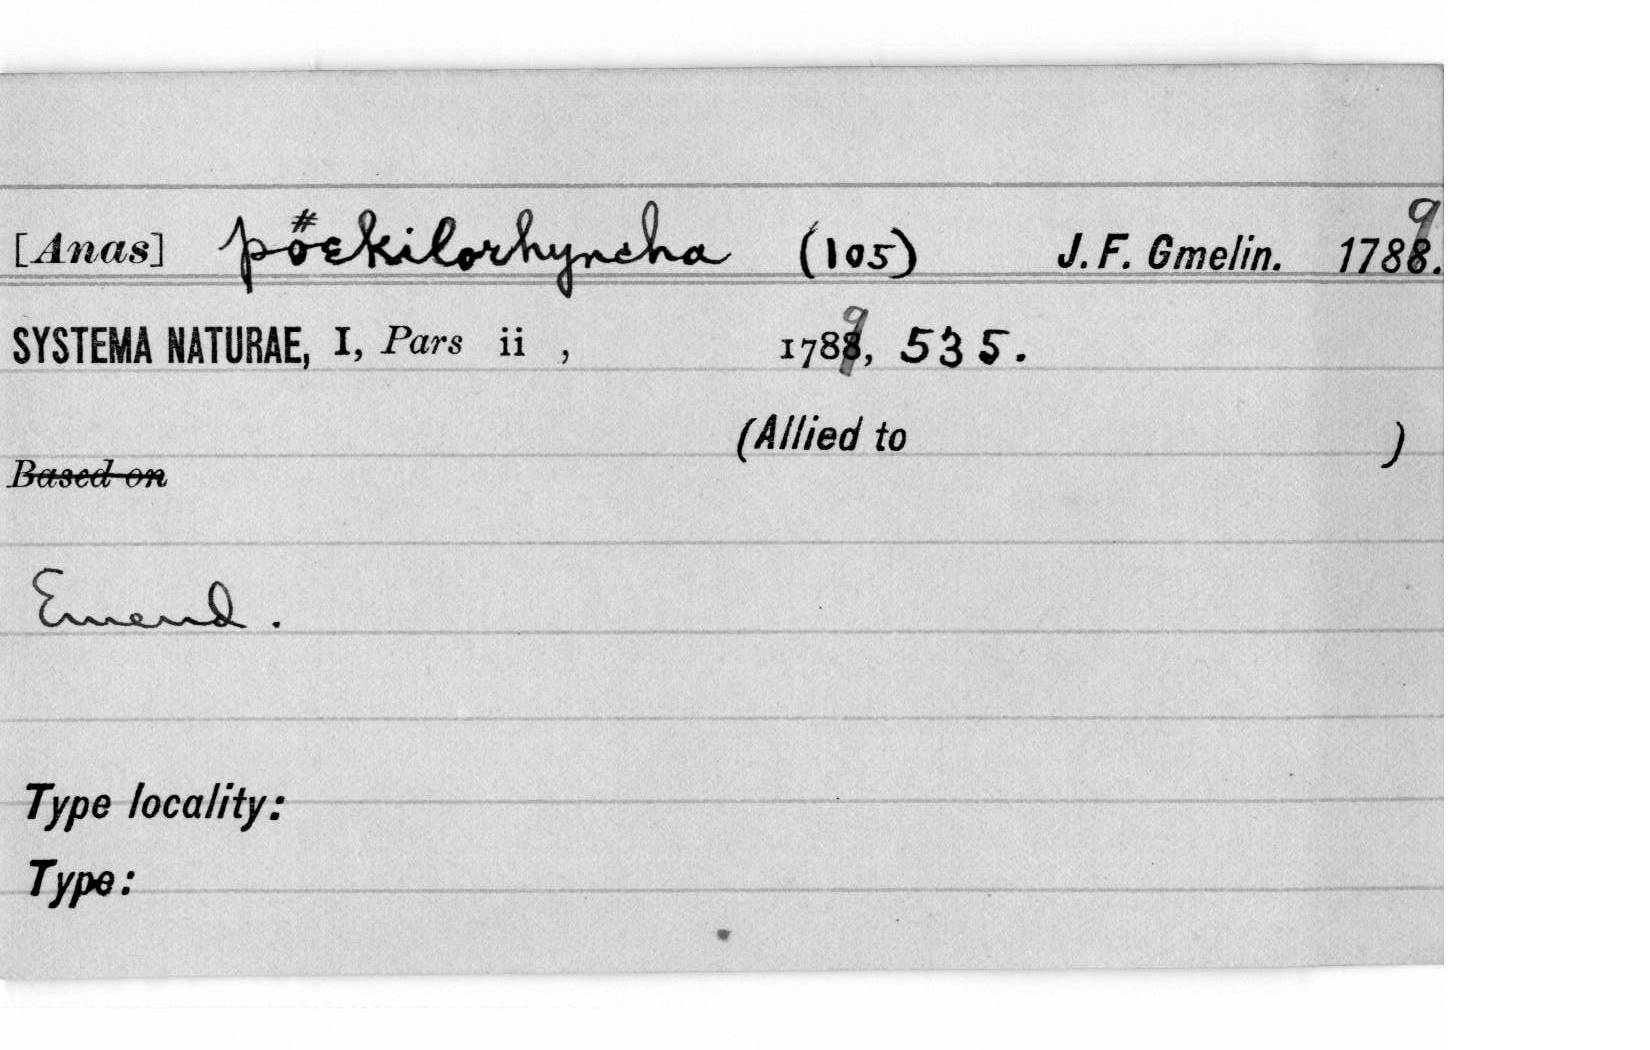 [Anas] pöekilorhyncha (105) J. F. Gmelin. 1789.
SYSTEMA NATURAE, I, Pars ii , 1789, 535.
(Allied to )
Based on
Emend.
Type locality:
Type: